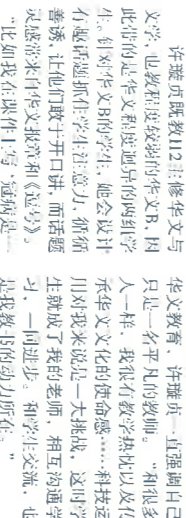 许璇贞既教H2主修华文与
文学，也教程度较弱的华文B，因
此带的是华文程度迥异的两组学
生。针对华文B的学生，她会设计
有趣话题抓住学生注意力，循循
善诱，让他们敢于开口讲，而话题
灵感常来自华文报章和《逗号》。
“比如我在课件上写‘冠病是
华文教育，许璇贞一直强调自己
只是一名平凡的教师。“和很多
人一样，我很有教学热忱以及传
承华文文化的使命感……科技运
用对我来说是一大挑战，这时学
生就成了我的老师，相互沟通学
习，一同进步。和学生交流，也
是我教书的动力所在。”